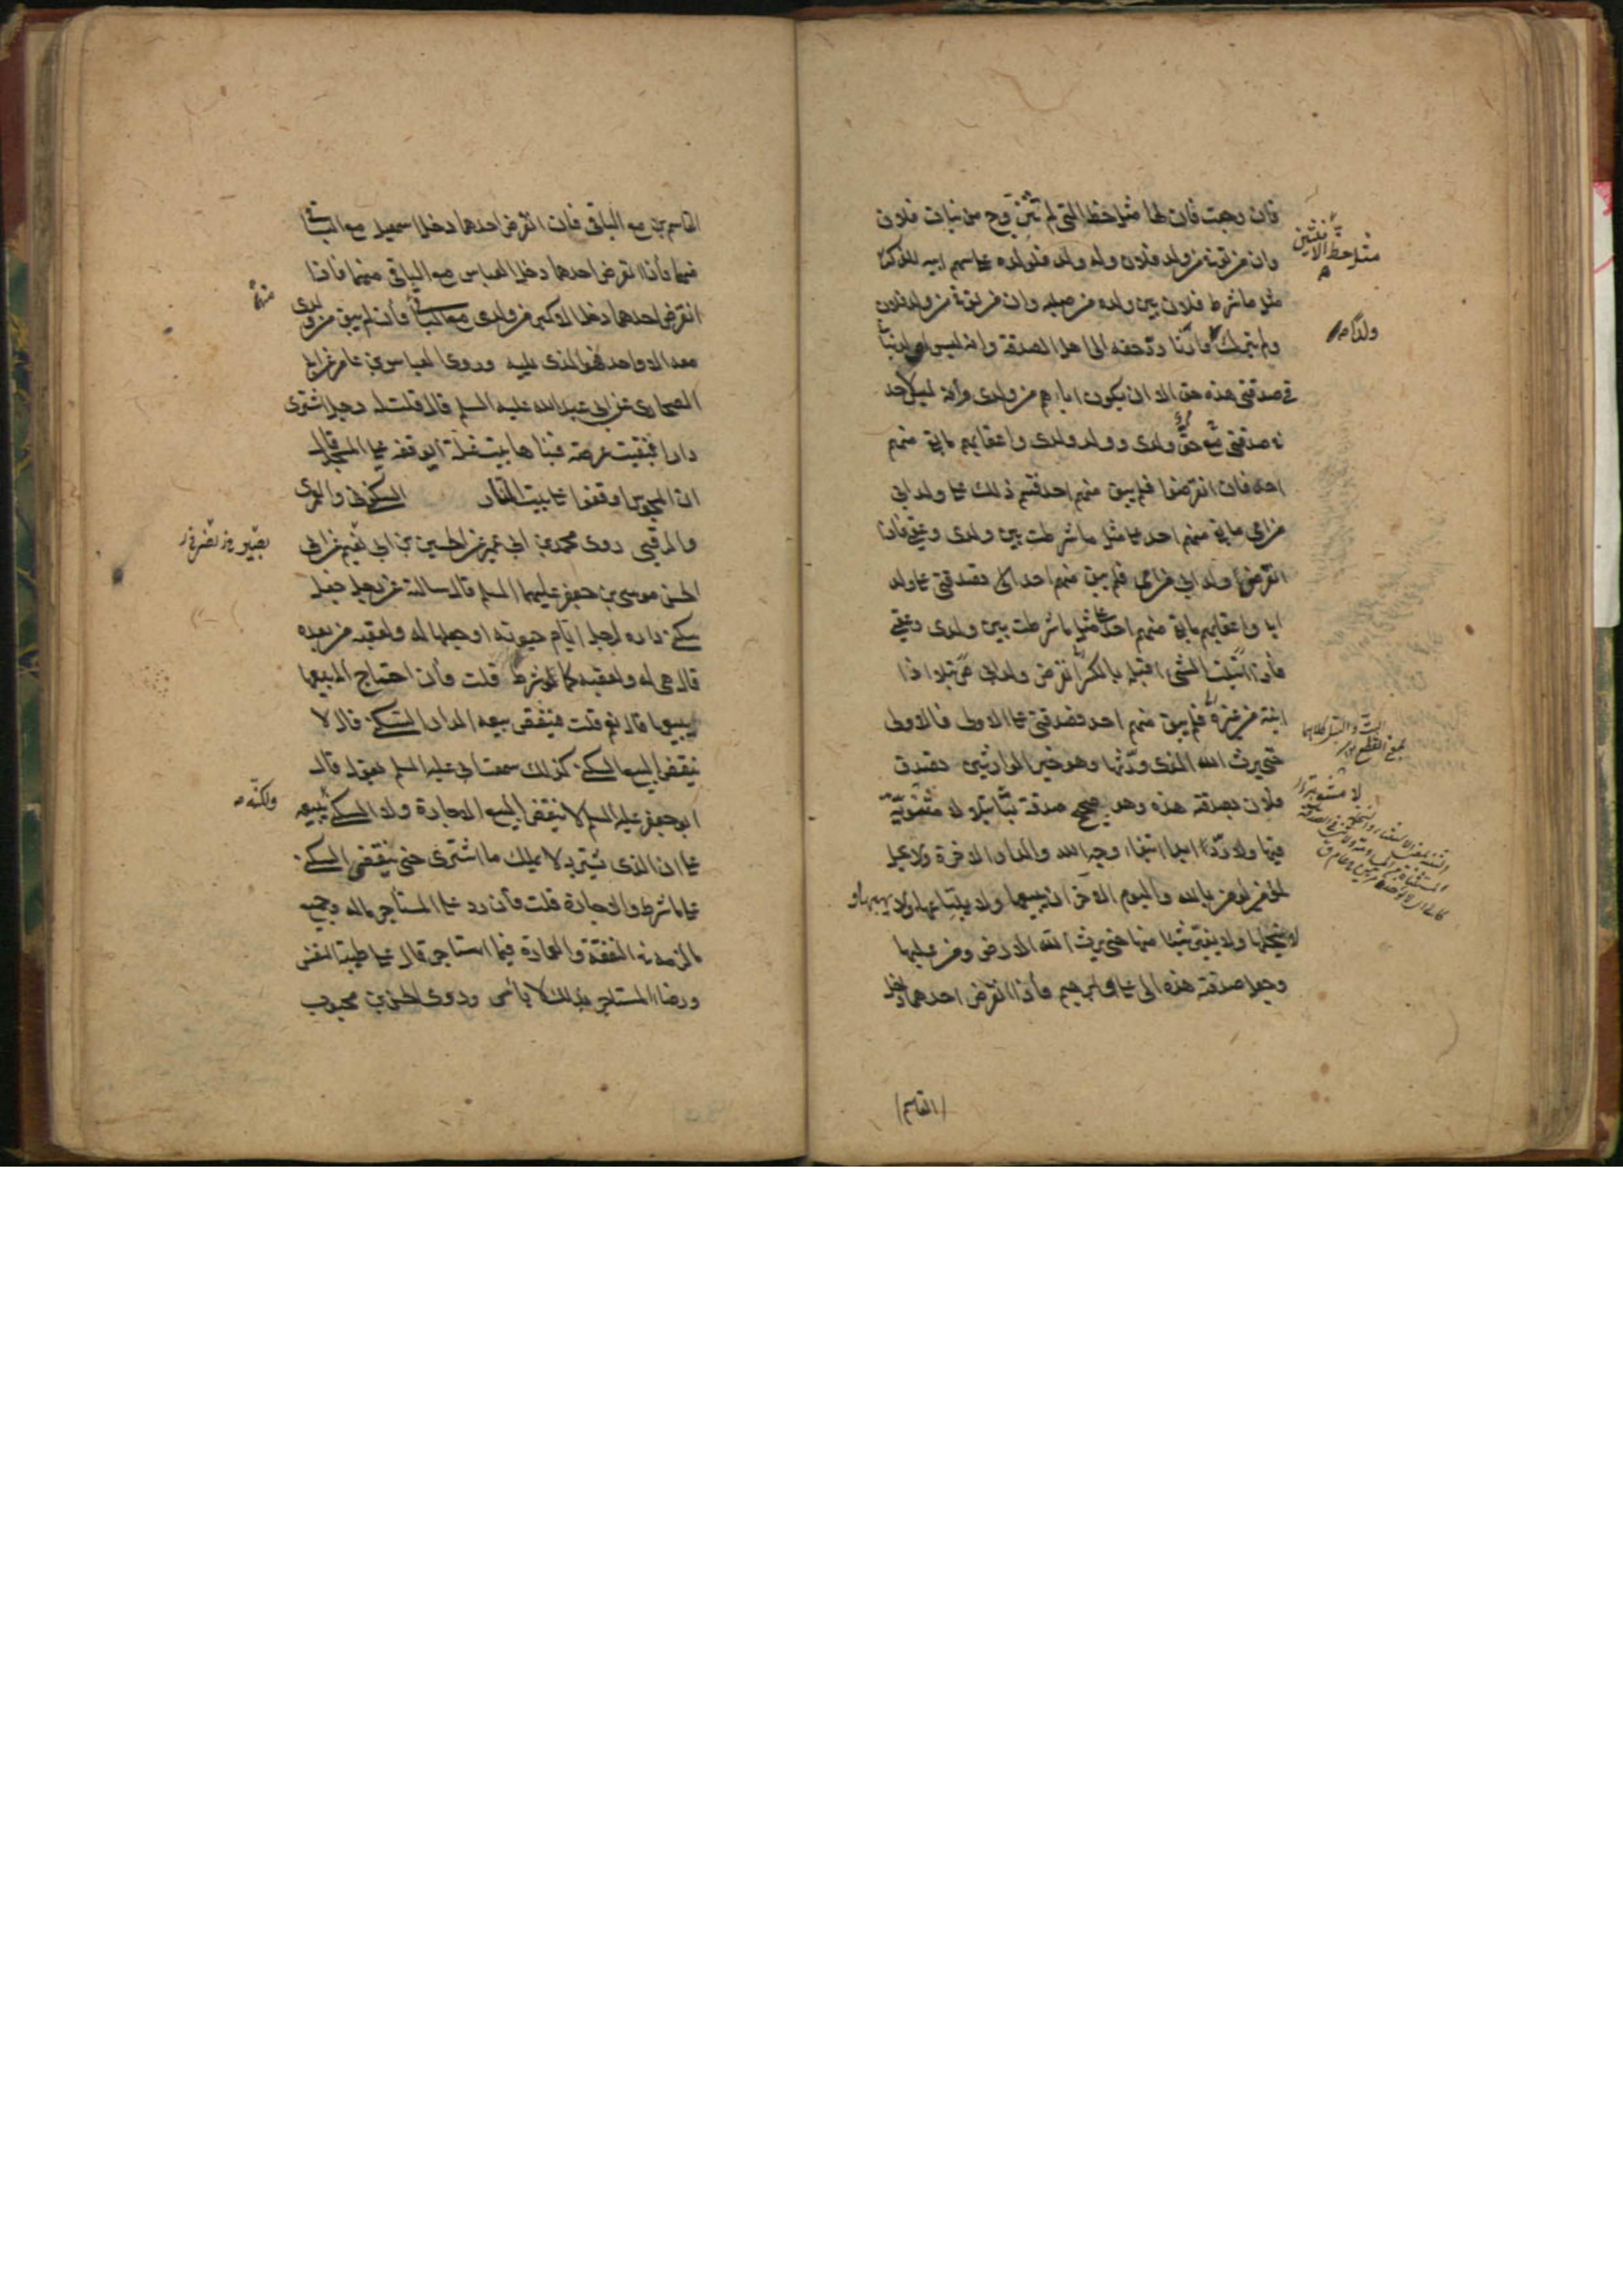 فان رجعت فان لها مثل حظ التي لم تتزوج من بنات فلان
وان من توفى من ولد فلان وله ولد فلولده على سهم ابيه للذكر
مثل ما شرط فلان بين ولده من صلبه وان من توفى من ولد فلان
ولم يترك وارثا رد حقه الى اهل الصدقة وانه ليس لولد بناتى
في صدقتي هذه حق الا ان يكون اباؤهم من ولدى وانه ليس لاحد
في صدقتي حق مع ولدى وولد ولدى واعقابهم ما بقي منهم
احد فان انقرضوا فلم يبق منهم احد قسم ذلك على ولد ابي
من امي ما بقي منهم احد على مثل ما شرطت بين ولدى وعقبي فاذا
انقرض ولد ابي من امي فلم يبق منهم احد فصدقتي على ولد
ابي واعقابهم ما بقي منهم احد على مثل ما شرطت بين ولدى وعقبي
ابنه من غيره فلم يبق منهم احد فصدقتي على الاولى فالاولى
حتى يرث الله الذى ورثها وهو خير الوارثين تصدق
فلان بصدقته هذه وهو صحيح صدقة بتا بتلا لا مثنوية
فيها ولا ردا ابدا ابتغاء وجه الله والدار الاخرة ولا يحل
لمؤمن يؤمن بالله واليوم الاخر ان يبيعها ولا يبتاعها ولا يهبها و
لا ينحلها ولا يغير شيئا منها حتى يرث الله الارض ومن عليها
وجعل صدقته هذه الى علي وابراهيم فاذا انقرض احدهما دخل
القاسم
مثل حظ الانثيين
ولدا صح
البت والبتل كلاهما
بمعنى القطع
لا مثنوية
القاسم مع الباقي فان انقرض احدهما دخل اسمعيل مع الباقي
منهما فاذا انقرض احدهما دخل العباس مع الباقي منهما فاذا
انقرض احدهما دخل الاكبر من ولدى مع الباقي فان لم يبق من ولدى
معه الا واحد فهو الذى يليه وروى العباس بن عامر عن ابي
الصحارى عن ابي عبد الله عليه السلم قال قلت له رجل اشترى
دارا فبقيت عرصة فبناها بيت غلة ايوقفه على المسجد قال
ان المجوس اوقفوا على بيت النار السكنى والعمرى
والرقبى روى محمد بن ابي عمير عن الحسين بن ابي نعيم عن ابي
الحسن موسى بن جعفر عليهما السلم قال سالته عن رجل جعل
سكنى داره لرجل ايام حيوته او جعلها له ولعقبه من بعده
قال هي له ولعقبه كما شرط قلت فان احتاج الى بيعها
يبيعها قال نعم قلت فينقض بيعه الدار السكنى قال لا
ينقض البيع السكنى كذلك سمعت ابي عليه السلم يقول قال
ابو جعفر عليه السلم لا ينقض البيع الاجارة ولا السكنى يبيعه
على ان الذى يشتريه لا يملك ما اشترى حتى ينقضي السكنى
على ما شرط والاجارة قلت فان رد على المستاجر ماله وجميع
ما لزمه في النفقة والعمارة فيما استاجر قال على طيبة النفس
ورضا المستاجر بذلك لا باس وروى الحسن بن محبوب
منهما
ولكنه